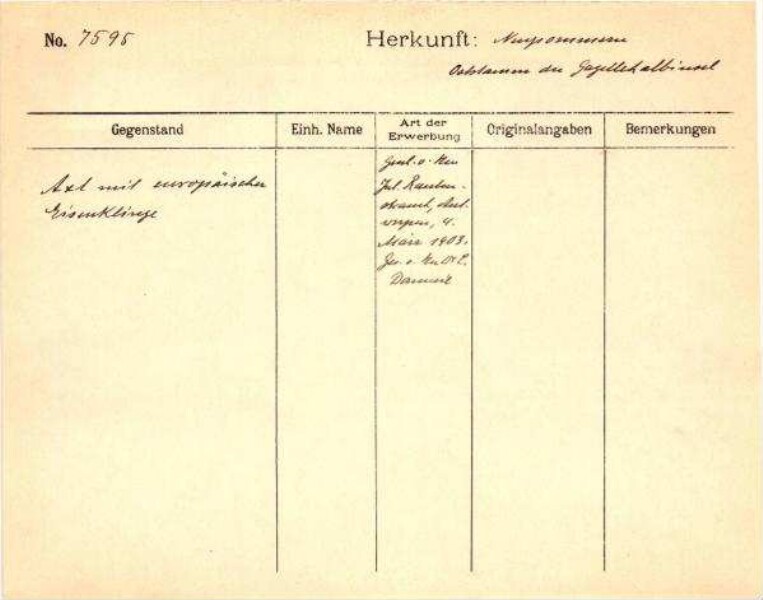 No. 7595
Herkunft: Neupommern
der Gazellehalbinsel
Gegenstand
Einh. Name
Art der Erwerbung
Originalangaben
Bemerkungen
Axt mit europäischer
Eisenklinge
Gesch. v. Herrn
Jul.
werpen, 4.
März 1903.
Ges. v.